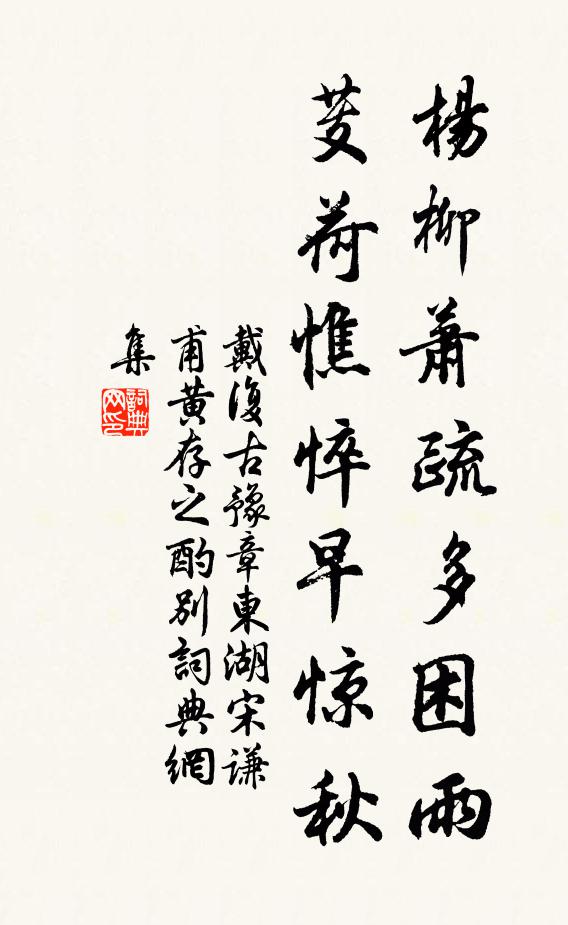 楊柳蕭疏多困雨
芰荷憔悴早惊秋
戴復古豫章東湖宋謙
甫黄存之酌别詞典網
集
詞典网印